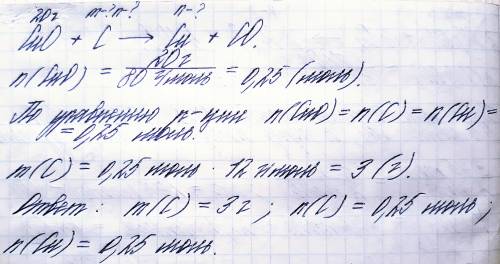 20г m-? n-? n-?
CuO + C → Cu + CO.
n(CuO) = 20г / 80 г/моль = 0,25 (моль).
По уравнению р-ции n(CuO) = n(C) = n(Cu) =
= 0,25 моль.
m(C) = 0,25 моль · 12 г/моль = 3 (г).
Ответ: m(C) = 3 г; n(C) = 0,25 моль;
n(Cu) = 0,25 моль.